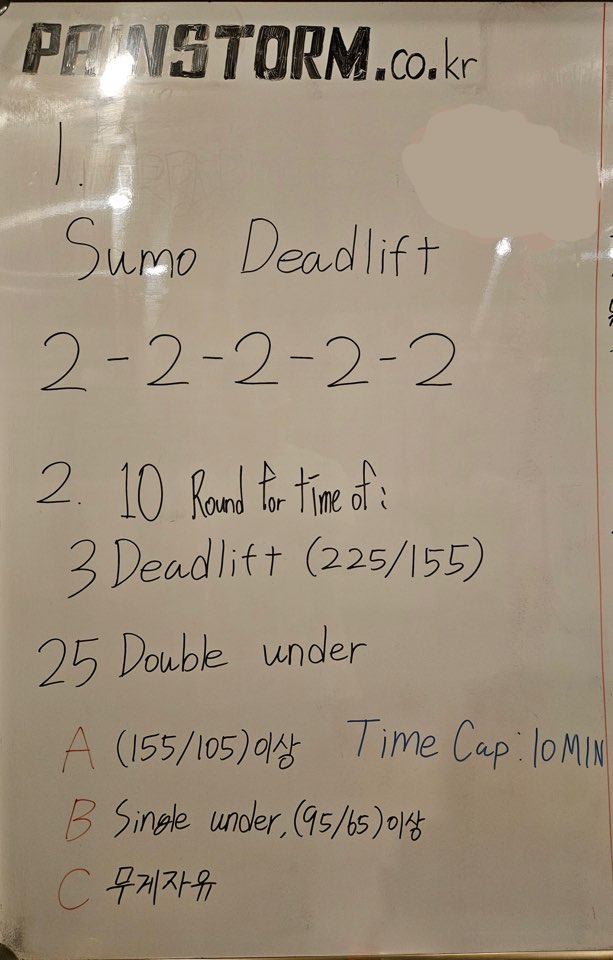 PAINSTORM.co.kr
1.
Sumo Deadlift
2-2-2-2-2
2. 10 Round for time of:
3 Deadlift (225/155)
25 Double under
A (155/105)이상 Time Cap: 10MIN
B Single under, (95/65)이상
C 무게자유